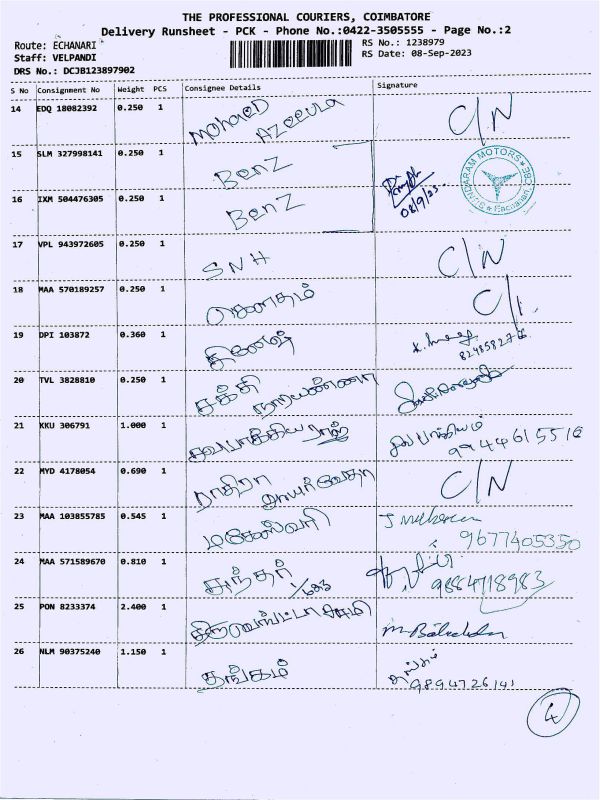 THE PROFESSIONAL COURIERS, COIMBATORE
Delivery Runsheet - PCK - Phone No.:0422-3505555 - Page No.:2
Route: ECHANARI
RS No.: 1238979
Staff: VELPANDI
RS Date: 08-Sep-2023
DRS No.: DCJB123897902
S No Consignment No Weight PCS Consignee Details Signature
14 EDQ 18082392 0.250 1 MOHAED AZEEULA C/N
15 SLM 327998141 0.250 1 BenZ
SUNDARAM MOTORS
16 IXM 504476305 0.250 1 BenZ
08/9/23
Eachanari, CBE
17 VPL 943972605 0.250 1 SNH C/N
18 MAA 570189257 0.250 1 கௌதம் C/
19 DPI 103872 0.360 1 தினேஷ்
20 TVL 3828810 0.250 1 சக்தி
21 KKU 306791 1.000 1 சிவபாக்கியம்
9944615516
22 MYD 4178054 0.690 1 C/N
23 MAA 103855785 0.545 1 மகேஸ்வரி
9677405350
24 MAA 571589670 0.810 1 சுந்தர் 1/683
9884718983
25 PON 8233374 2.400 1
26 NLM 90375240 1.150 1 தங்கம்
9894726141
4